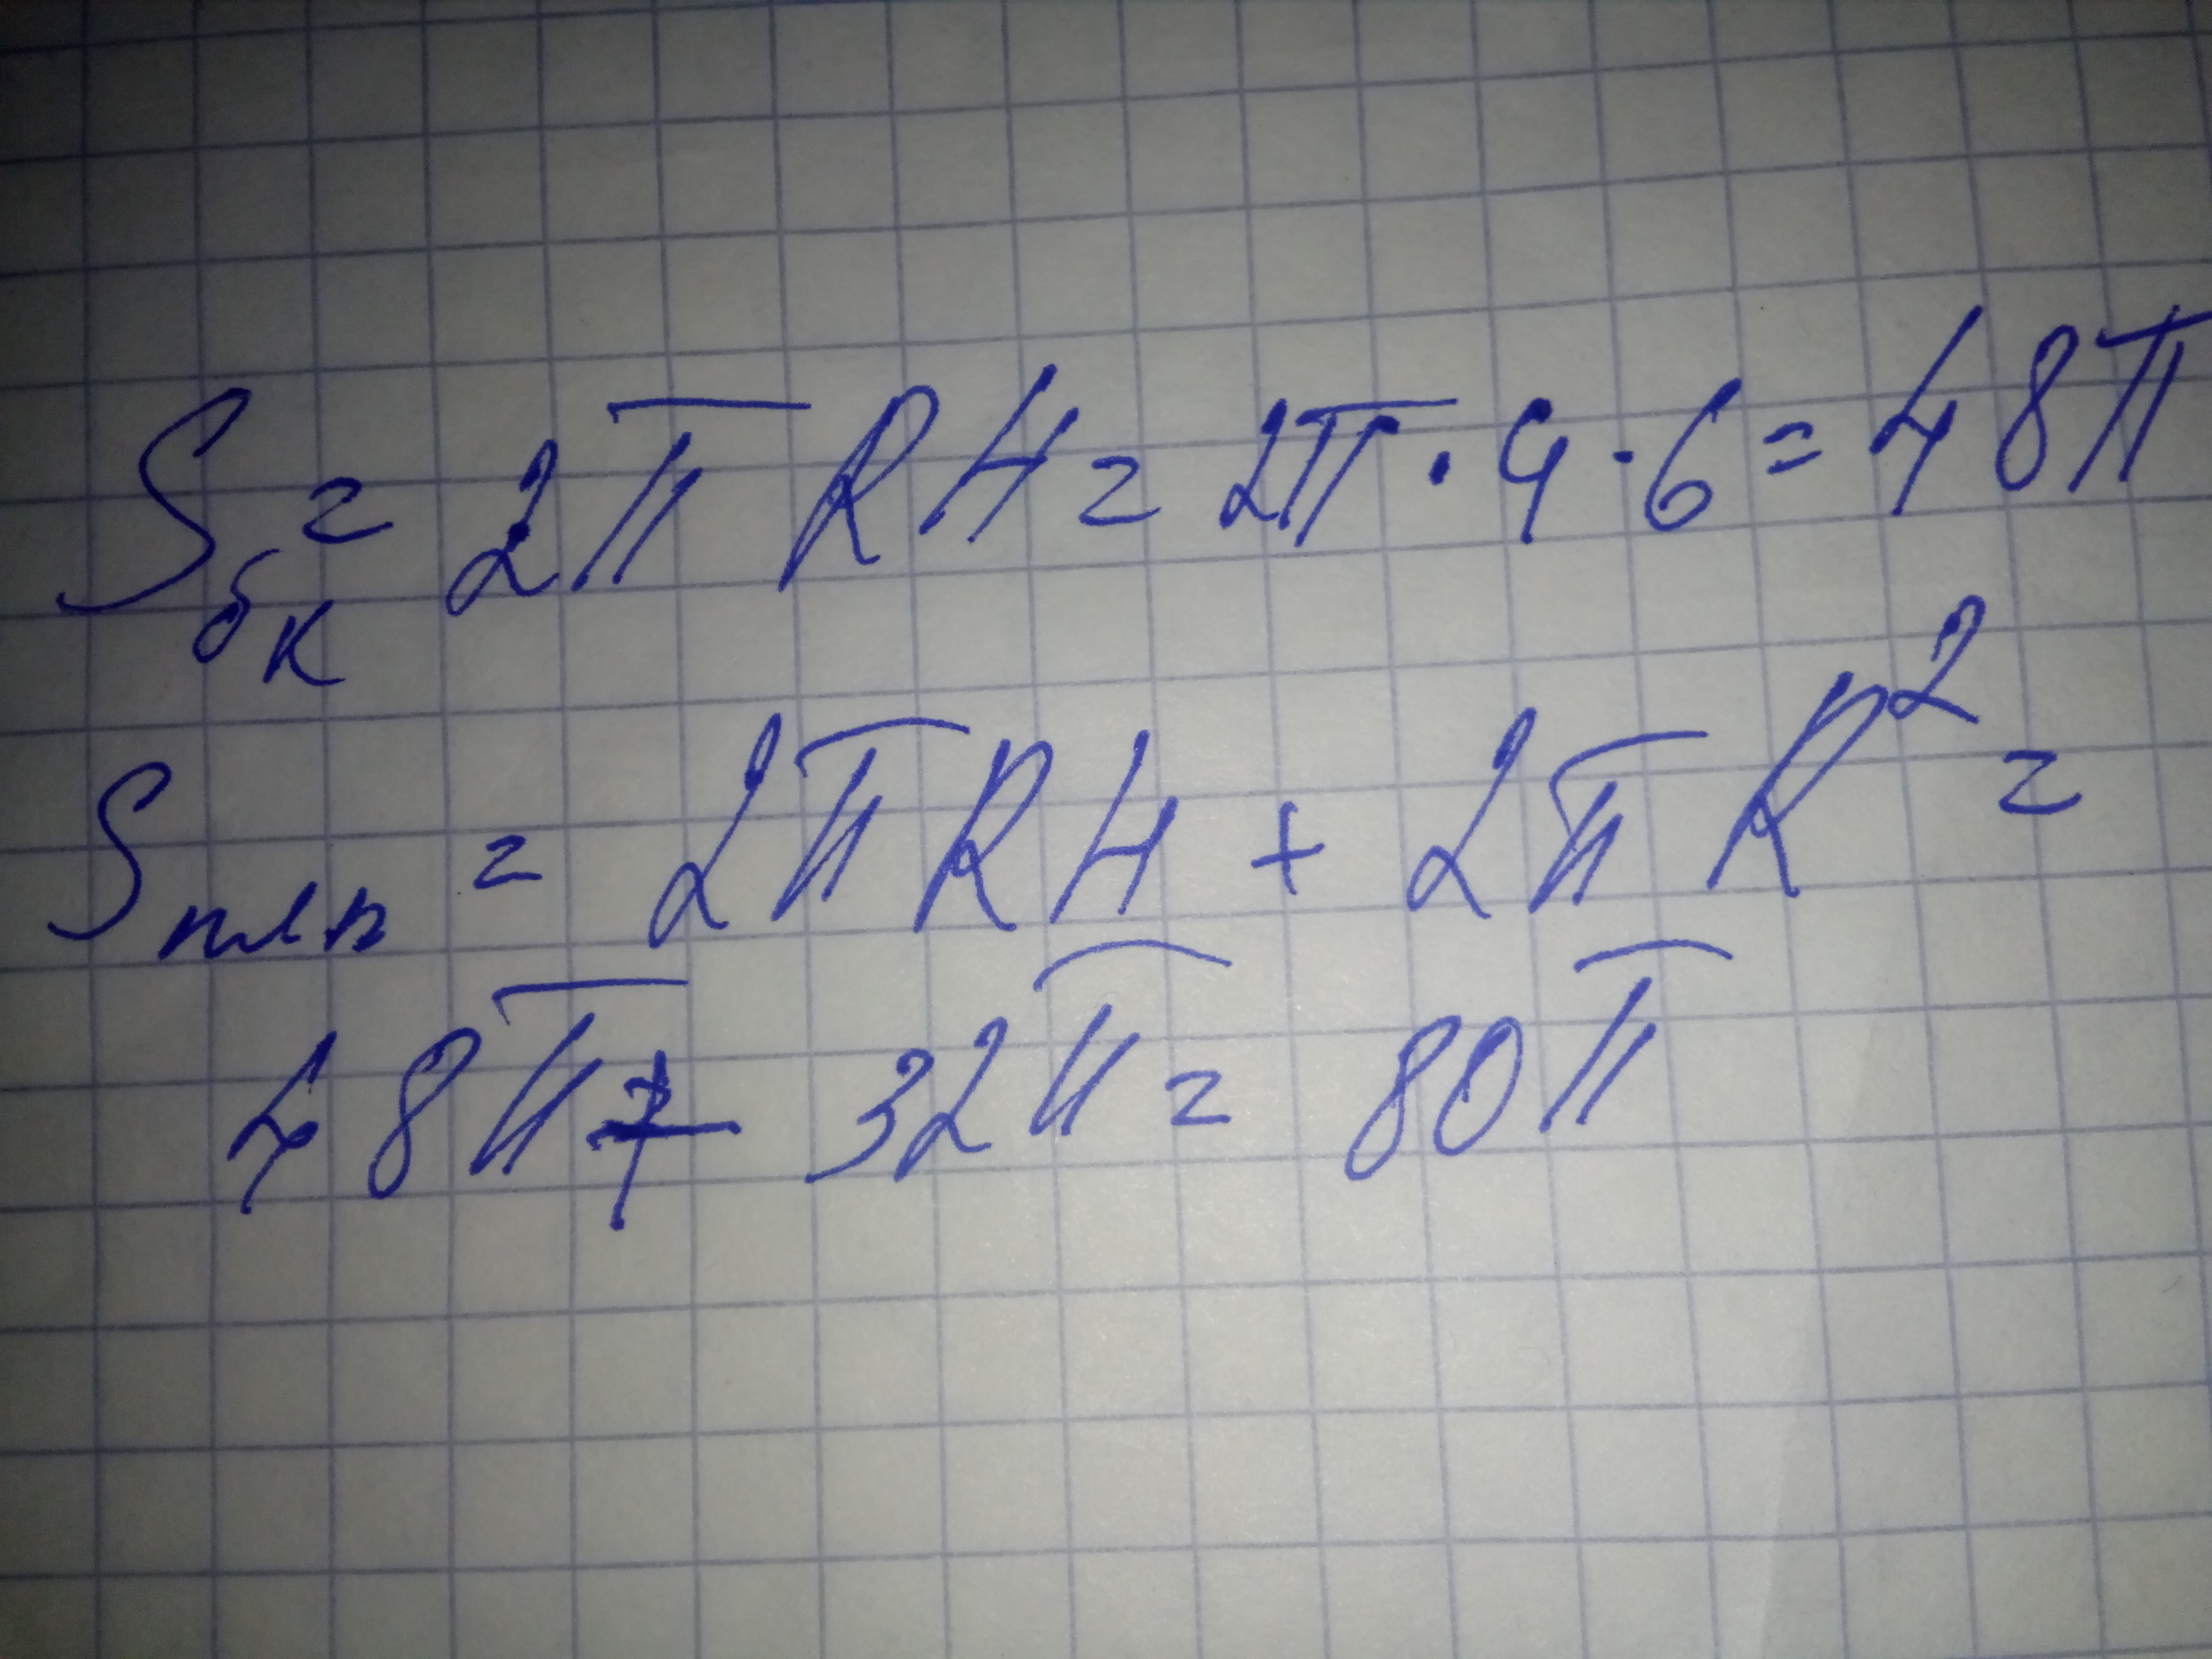 Sбк = 2π RH = 2π · 4 · 6 = 48π
Sплп = 2πRH + 2πR² =
48π + 32π = 80π